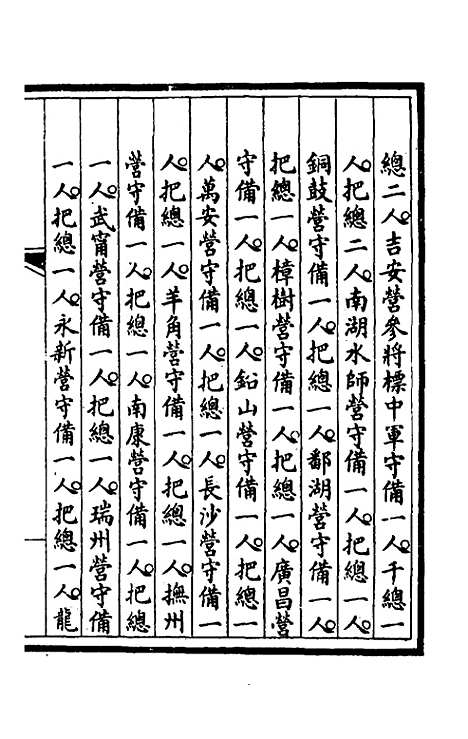 總二人。吉安營參將標中軍守備一人。千總一
人。把總二人。南湖水師營守備一人。把總一人。
銅鼓營守備一人。把總一人。鄱湖營守備一人。
把總一人。樟樹營守備一人。把總一人。廣昌營
守備一人。把總一人。鉛山營守備一人。把總一
人。萬安營守備一人。把總一人。長沙營守備一
人。把總一人。羊角營守備一人。把總一人。撫州
營守備一人。把總一人。南康營守備一人。把總
一人。武甯營守備一人。把總一人。瑞州營守備
一人。把總一人。永新營守備一人。把總一人。龍